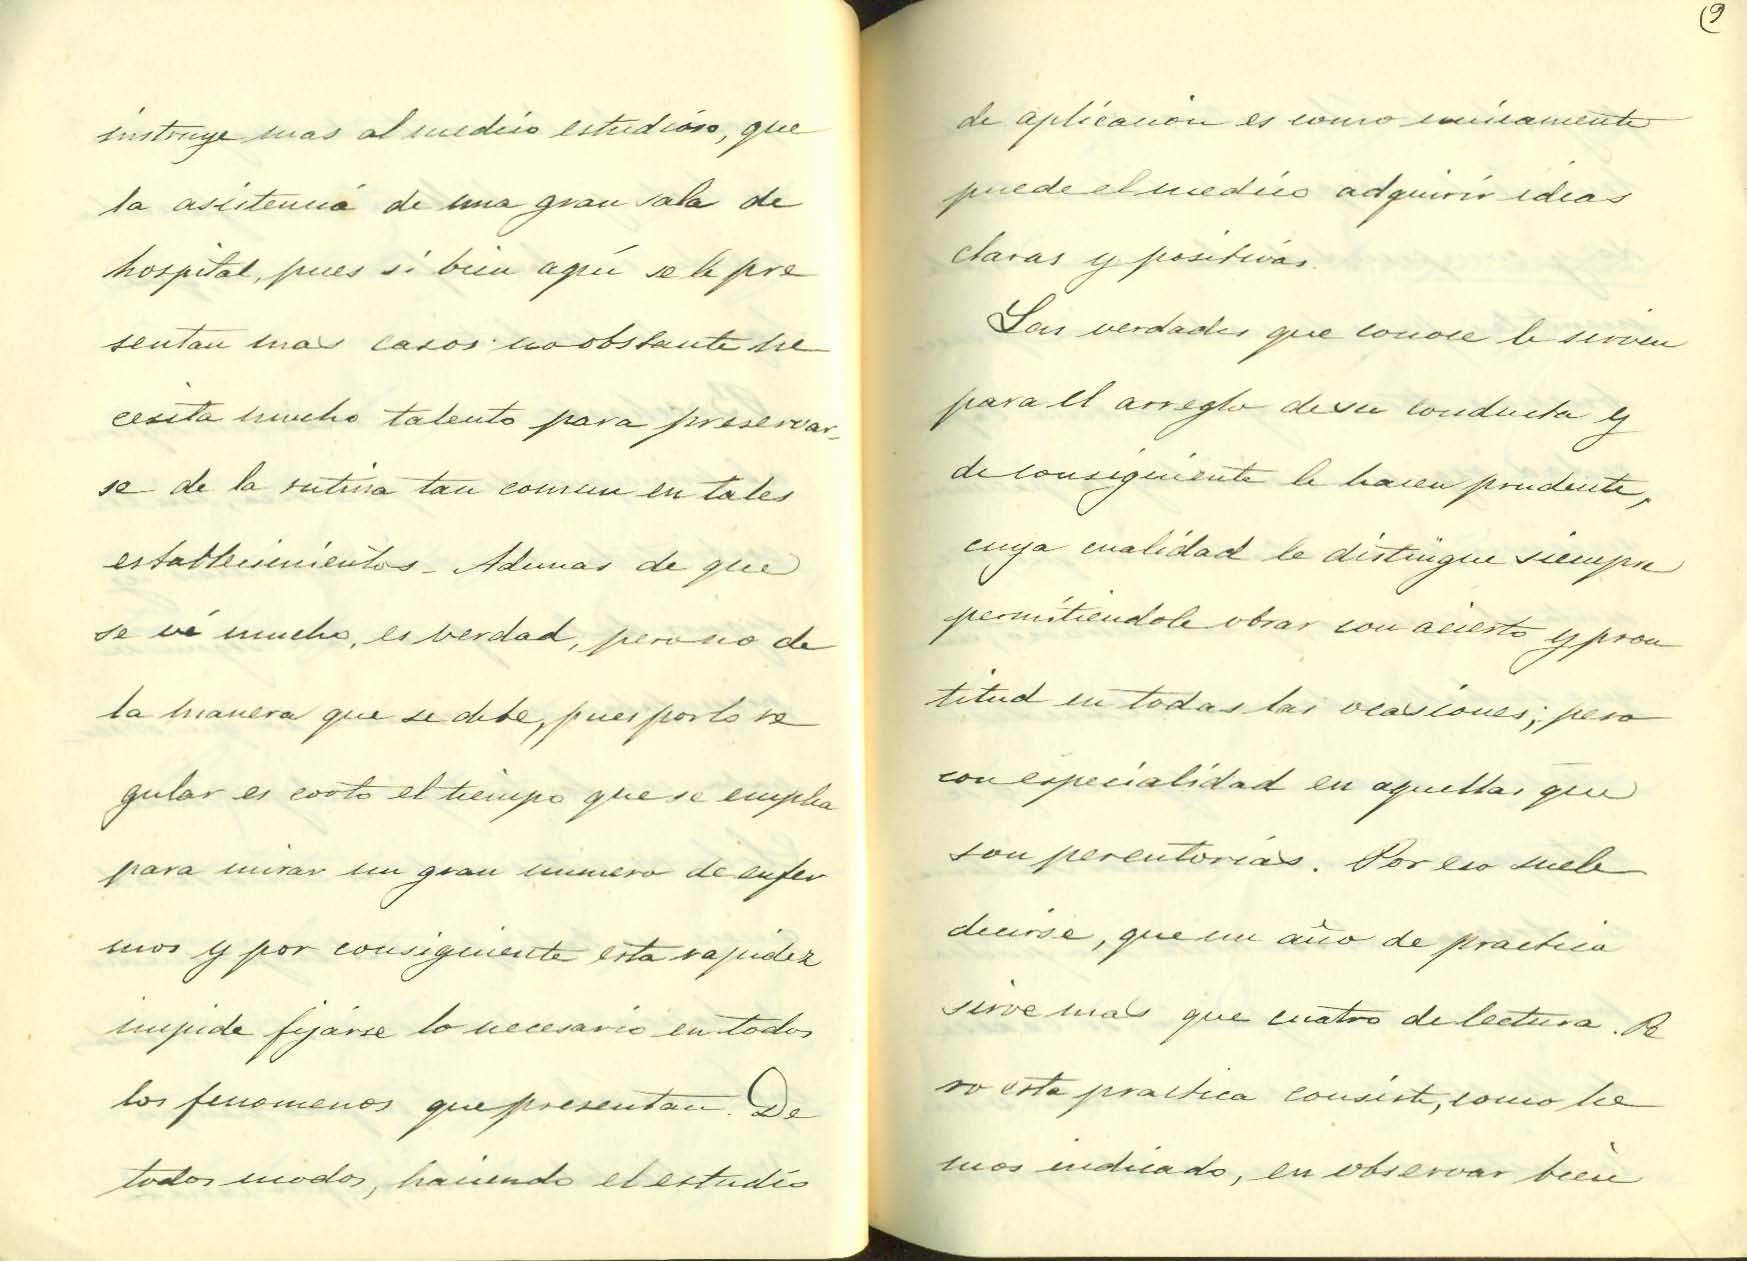 instruye mas al medico estudioso, que
la asistencia de una gran sala de
hospital, pues si bien aquí se le pre
sentan mas casos no obstante ne
cesita mucho talento para preservar-
se de la rutina tan comun en tales
establecimientos. Ademas de que
se vé mucho, es verdad, pero no de
la manera que se debe, pues por lo re
gular es corto el tiempo que se emplea
para mirar un gran numero de enfer
mos y por consiguiente esta rapidez
impide fijarse lo necesario en todos
los fenomenos que presentan. De
todos modos, haciendo el estudio
9
de aplicacion es como unicamente
puede el medico adquirir ideas
claras y positivas.
Las verdades que conoce le sirven
para el arreglo de su conducta y
de consiguiente le hacen prudente,
cuya cualidad le distingue siempre
permitiendole obrar con acierto y pron
titud en todas las ocasiones; pero
con especialidad en aquellas que
son perentorias. Por eso suele
decirse, que un año de practica
sirve mas que cuatro de lectura. Pe
ro esta practica consiste, como he
mos indicado, en observar bien